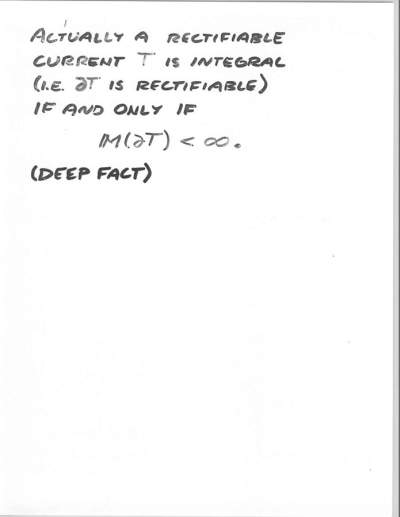 ACTUALLY A RECTIFIABLE
CURRENT T IS INTEGRAL
(I.E. ∂T IS RECTIFIABLE)
IF AND ONLY IF
𝕄(∂T) < ∞.
(DEEP FACT)